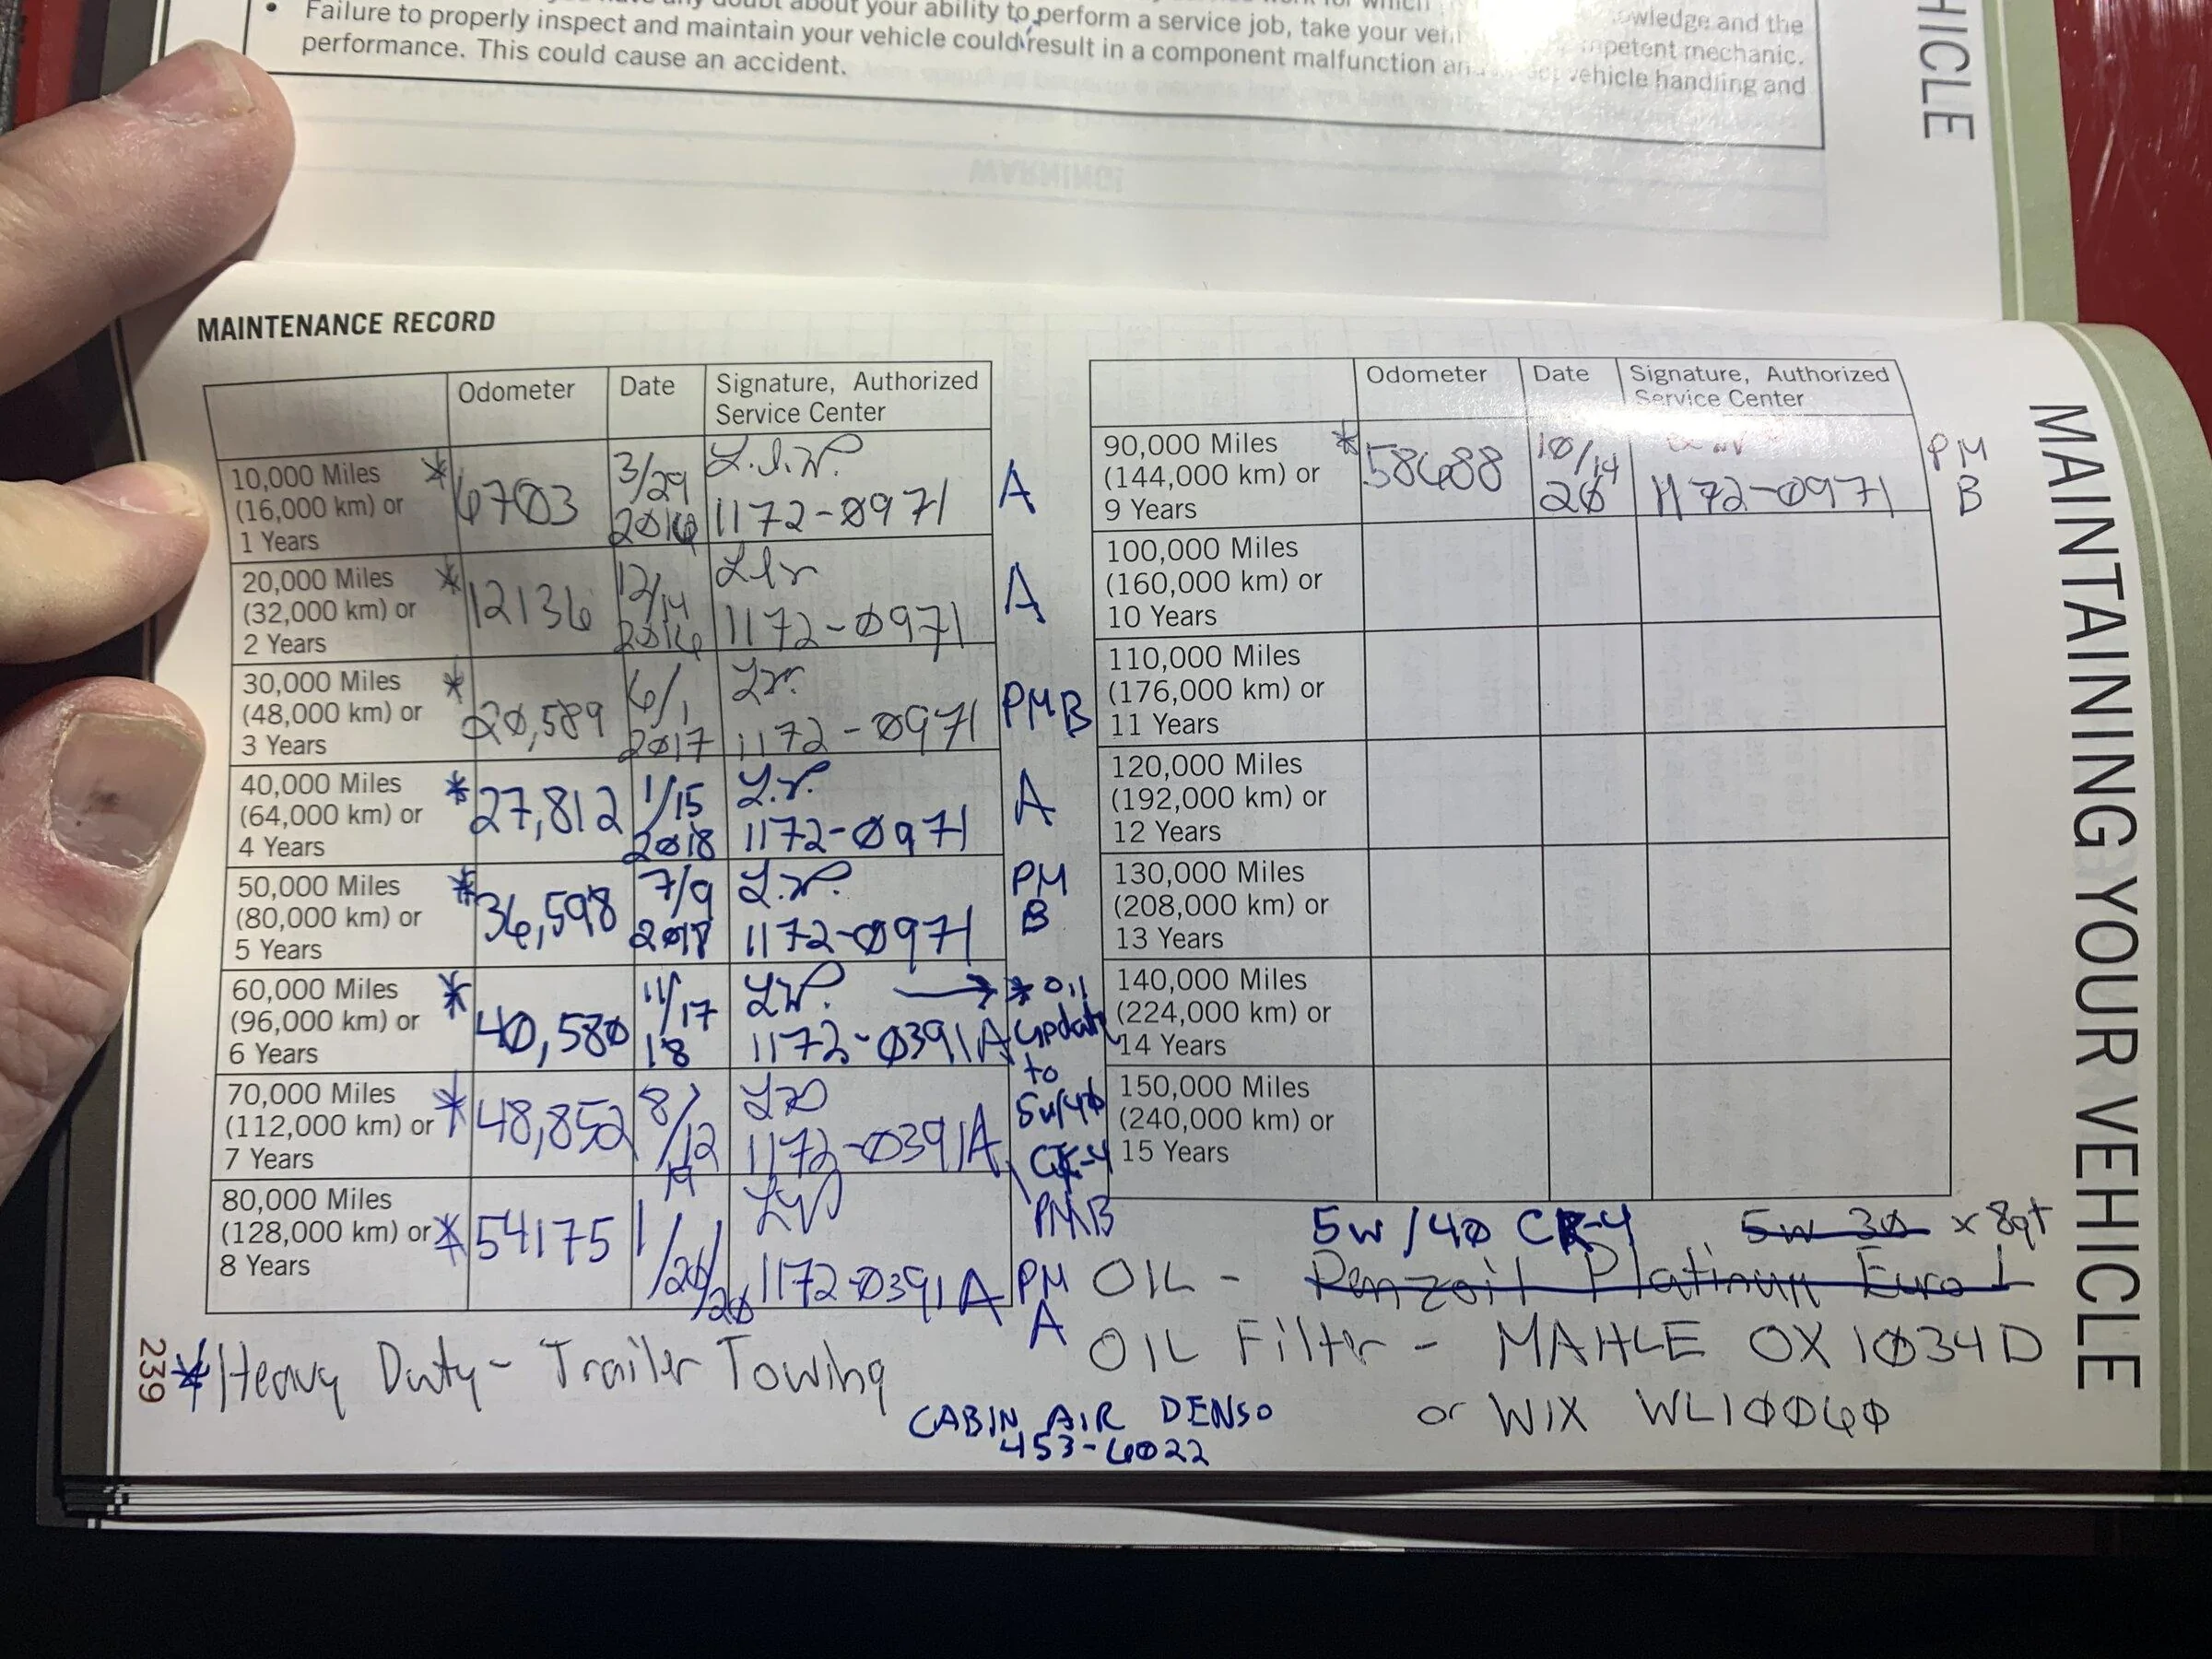 about your ability to perform a service job, take your
owledge and the
mpetent mechanic.
• Failure to properly inspect and maintain your vehicle could result in a component malfunction
vehicle handling and
performance. This could cause an accident.
HICLE
MAINTENANCE RECORD
Odometer Date Signature, Authorized
Service Center
10,000 Miles
(16,000 km) or
1 Years
* 6703 3/29 2016 L.I.W. 1172-0971 A
20,000 Miles
(32,000 km) or
2 Years
* 12136 12/14 2016 1172-0971 A
30,000 Miles
(48,000 km) or
3 Years
* 20,589 6/1 2017 1172-0971 PMB
40,000 Miles
(64,000 km) or
4 Years
* 27,812 1/15 2018 1172-0971 A
50,000 Miles
(80,000 km) or
5 Years
* 36,598 7/9 2018 1172-0971 PM
B
60,000 Miles
(96,000 km) or
6 Years
* 40,580 11/17 18 1172-0391A → * OIL
update
to
5w/40
CK-4
70,000 Miles
(112,000 km) or
7 Years
* 48,852 8/12 19 1172-0391A PMB
80,000 Miles
(128,000 km) or
8 Years
* 54175 1/20/20 1172-0391A PM
A
Odometer Date Signature, Authorized
Service Center
90,000 Miles
(144,000 km) or
9 Years
* 58688 10/14 20 1172-0971 PM
B
100,000 Miles
(160,000 km) or
10 Years
110,000 Miles
(176,000 km) or
11 Years
120,000 Miles
(192,000 km) or
12 Years
130,000 Miles
(208,000 km) or
13 Years
140,000 Miles
(224,000 km) or
14 Years
150,000 Miles
(240,000 km) or
15 Years
5w/40 CK-4 5w 30 x 8qt
OIL - Penzoil Platinum Euro L
OIL Filter - MAHLE OX 1034D
or WIX WL10060
* Heavy Duty - Trailer Towing
CABIN AIR DENSO
453-6022
239
MAINTAINING YOUR VEHICLE